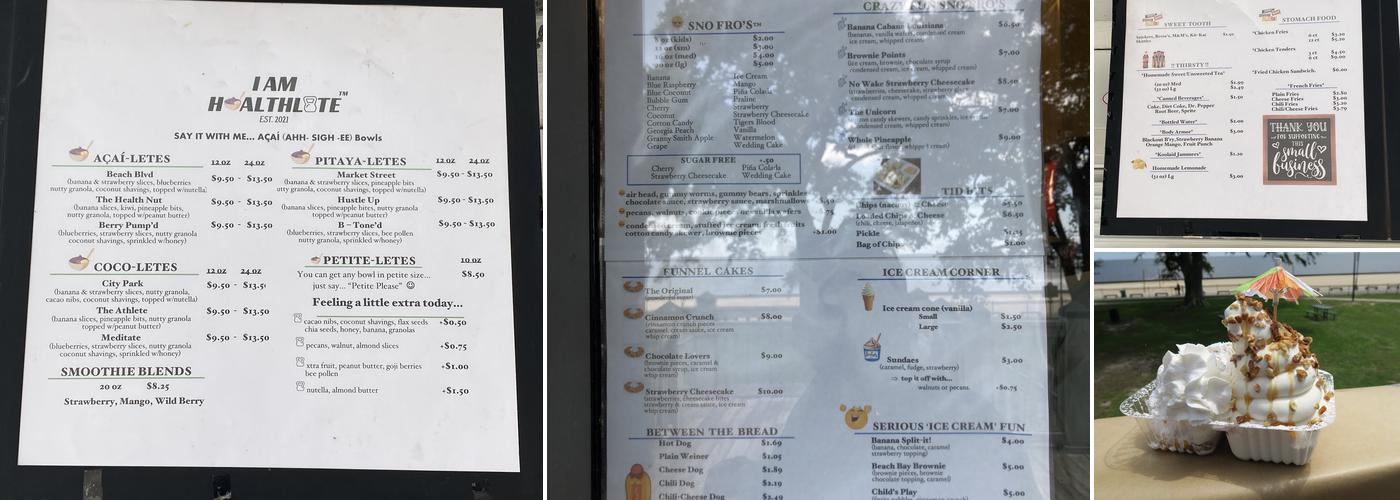 I AM
HEALTHLETE™
EST. 2021
SAY IT WITH ME... AÇAÍ (AHH- SIGH -EE) Bowls
AÇAÍ-LETES 12 OZ 24 OZ
Beach Blvd $9.50 - $13.50
(banana & strawberry slices, blueberries
nutty granola, coconut shavings, topped w/nutella)
The Health Nut $9.50 - $13.50
(banana slices, kiwi, pineapple bits,
nutty granola, topped w/peanut butter)
Berry Pump'd $9.50 - $13.50
(blueberries, strawberry slices, nutty granola
coconut shavings, sprinkled w/honey)
COCO-LETES 12 OZ 24 OZ
City Park $9.50 -
(banana & strawberry slices, nutty granola,
cacao nibs, coconut shavings, topped w/nutella)
The Athlete $9.50 - $13.50
(banana slices, pineapple bits, nutty granola
topped w/peanut butter)
Meditate $9.50 - $13.50
(blueberries, strawberry slices, nutty granola
coconut shavings, sprinkled w/honey)
SMOOTHIE BLENDS
20 OZ $8.25
Strawberry, Mango, Wild Berry
PITAYA-LETES 12 OZ 24 OZ
Market Street $9.50 - $13.50
(banana & strawberry slices, pineapple bits
nutty granola, coconut shavings, topped w/nutella)
Hustle Up $9.50 - $13.50
(banana slices, pineapple bits, nutty granola
topped w/peanut butter)
B – Tone'd $9.50 - $13.50
(blueberries, strawberry slices, bee pollen
nutty granola, sprinkled w/honey)
PETITE-LETES 10 OZ
You can get any bowl in petite size... $8.50
just say... "Petite Please" ☺
Feeling a little extra today...
cacao nibs, coconut shavings, flax seeds +$0.50
chia seeds, honey, banana, granolas
pecans, walnut, almond slices +$0.75
xtra fruit, peanut butter, goji berries +$1.00
bee pollen
nutella, almond butter +$1.50
SNO FRO'S™
8 oz (kids) $2.00
12 oz (sm) $3.00
16 oz (med) $4.00
20 oz (lg) $5.00
Banana Ice Cream
Blue Raspberry Mango
Blue Coconut Piña Colada
Bubble Gum Praline
Cherry Strawberry
Coconut Strawberry Cheesecake
Cotton Candy Tigers Blood
Georgia Peach Vanilla
Granny Smith Apple Watermelon
Grape Wedding Cake
SUGAR FREE +.50
Cherry Piña Colada
Strawberry Cheesecake Wedding Cake
air head, gummy worms, gummy bears, sprinkles
chocolate sauce, strawberry sauce, marshmallow
pecans, walnuts, cookie pieces or vanilla wafers
condensed ice cream, stuffed ice cream, fresh fruits
cotton candy skewer, brownie pieces +$1.00
FUNNEL CAKES
The Original $7.00
(powdered sugar)
Cinnamon Crunch $8.00
(cinnamon crunch pieces
caramel, cream sauce, ice cream
whip cream)
Chocolate Lovers $9.00
(brownie pieces, caramel &
chocolate syrup, ice cream
whip cream)
Strawberry Cheesecake $10.00
(strawberries, cheesecake bites
strawberry & cream sauce, ice cream
whip cream)
BETWEEN THE BREAD
Hot Dog $1.69
Plain Weiner $1.05
Cheese Dog $1.89
Chili Dog $2.19
Chili-Cheese Dog $2.49
CRAZY FUN SNO FRO'S
Banana Cabana Louisiana $6.50
(bananas, vanilla wafers, condensed cream
ice cream, whipped cream)
Brownie Points $7.00
(ice cream, brownie, chocolate syrup
condensed cream, ice cream, whipped cream)
No Wake Strawberry Cheesecake $8.50
(strawberries, cheesecake, strawberry glaze
condensed cream, whipped cream)
The Unicorn $7.00
candy skewers, candy sprinkles, ice cream
condensed cream, whipped cream)
Whole Pineapple $9.00
TID BITS
Chips (nachos) & Cheese $5.50
Loaded Chips & Cheese $6.50
(chili, cheese, jalapeños)
Pickle $1.25
Bag of Chips $1.00
ICE CREAM CORNER
Ice cream cone (vanilla)
Small $1.50
Large $2.50
Sundaes $3.00
(caramel, fudge, strawberry)
⇒ top it off with...
walnuts or pecans. +$0.75
SERIOUS 'ICE CREAM' FUN
Banana Split-it! $4.00
(banana, chocolate, caramel
strawberry topping)
Beach Bay Brownie $5.00
(brownie pieces, brownie
chocolate topping, caramel)
Child's Play $5.00
SWEET TOOTH
Snickers, Reese's, M&M's, Kit- Kat $1.50
Skittles
!! THIRSTY !!
*Homemade Sweet/Unsweeted Tea*
(20 oz) Med $1.99
(32 oz) Lg $2.49
*Canned Beverages* $1.50
Coke, Diet Coke, Dr. Pepper
Root Beer, Sprite
*Bottled Water* $1.00
*Body Armor* $3.00
Blackout B'ry, Strawberry Banana
Orange Mango, Fruit Punch
*Koolaid Jammers* $1.20
Homemade Lemonade
(32 oz) Lg $3.00
STOMACH FOOD
*Chicken Fries 6 ct $3.20
12 ct $5.20
*Chicken Tenders 3 ct $4.50
6 ct $9.00
*Fried Chicken Sandwich. $6.00
*French Fries*
Plain Fries $2.80
Cheese Fries $3.00
Chili Fries $3.20
Chili/Cheese Fries $3.79
THANK YOU
FOR SUPPORTING
THIS
small
business